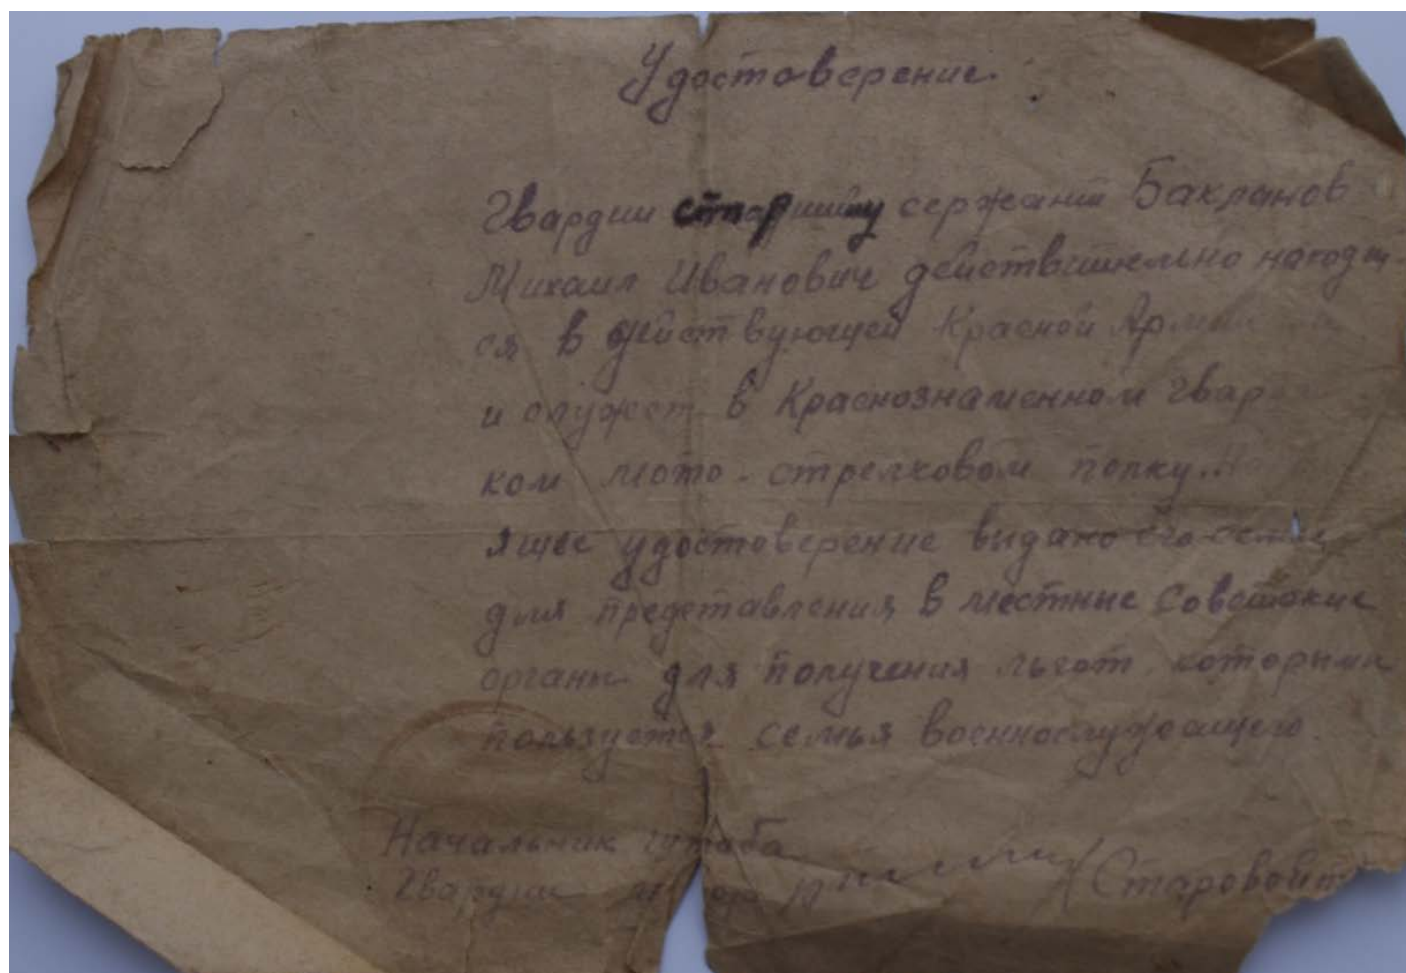 Удостоверение.
Гвардии старший сержант Бакланов
Михаил Иванович действительно находит-
ся в действующей Красной Армии
и служет в Краснознаменном гвар
ком мото-стрелковом полку..
ящее удостоверение выдано его семье
для представления в местные Советские
органы для получения льгот, которыми
пользуется семья военнослужащего.
Начальник штаба
Гвардии (Старовойт